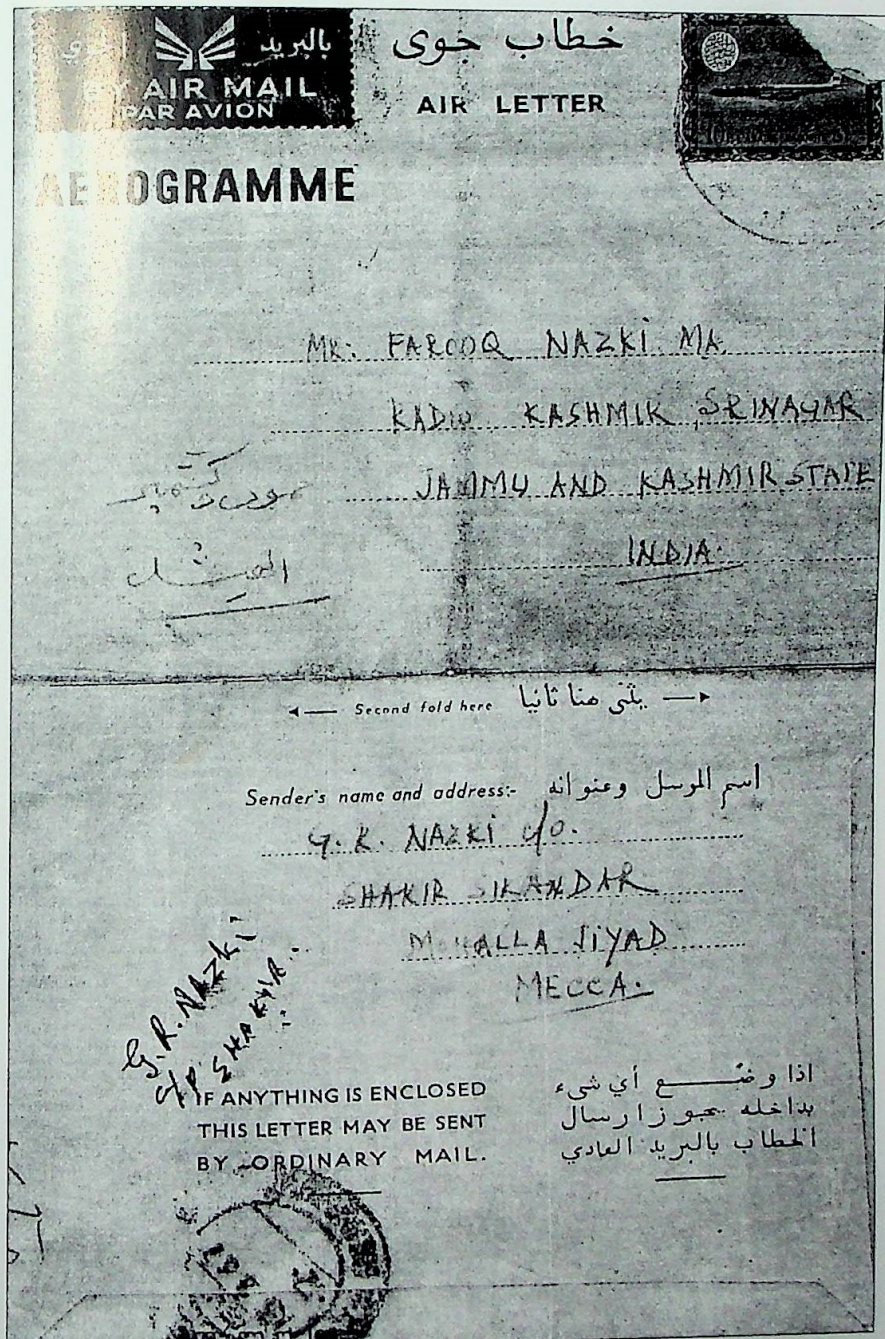 بالبريد الجوي
BY AIR MAIL
PAR AVION
خطاب جوى
AIR LETTER
AEROGRAMME
MR: FAROOQ NAZKI MA
RADIO KASHMIR, SRINAGAR
JAMMU AND KASHMIR STATE
INDIA.
الهند
← Second fold here يثنى هنا ثانيا →
Sender's name and address:- اسم المرسل وعنوانه
G. R. NAZKI c/o.
SHAKIR SIKANDAR
MOHALLA JIYAD
MECCA.
G. R. NAZKI
c/o SHAKIR
IF ANYTHING IS ENCLOSED
THIS LETTER MAY BE SENT
BY ORDINARY MAIL.
اذا وضع أي شىء
بداخله يجوز ارسال
الخطاب بالبريد العادي